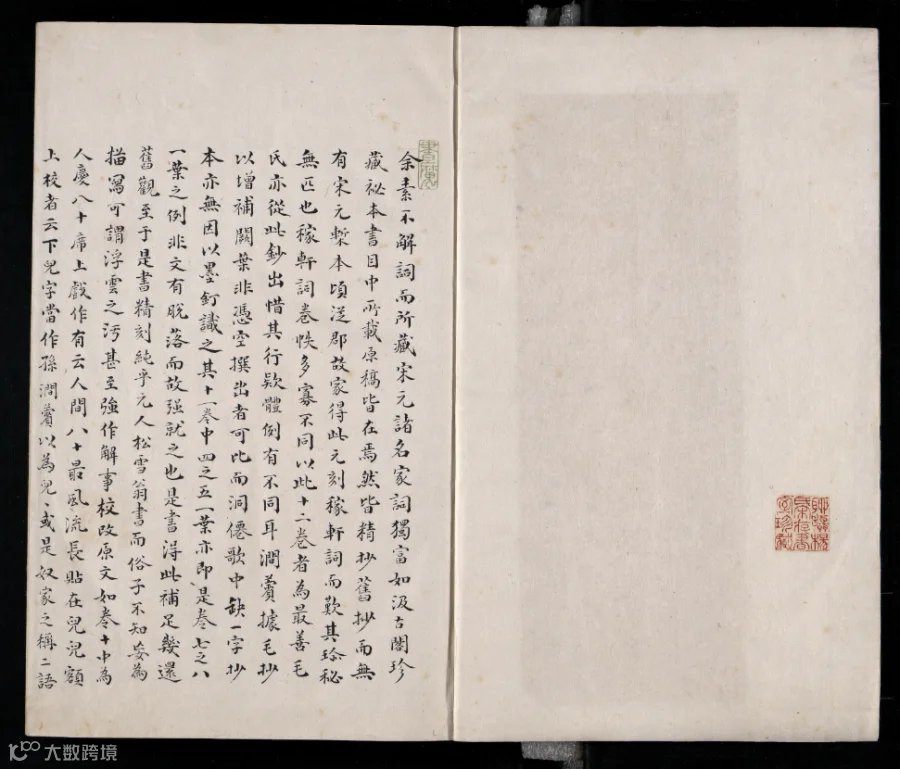 余素不解詞而所藏宋元諸名家詞獨富如汲古閣珍
藏祕本書目中所載原稿皆在焉然皆精抄舊抄而無
有宋元槧本頃從郡故家得此元刻稼軒詞而歎其珍祕
無匹也稼軒詞卷帙多寡不同以此十二卷者為最善毛
氏亦從此鈔出惜其行欵體例有不同耳澗薲據毛抄
以增補闕葉非憑空撰出者可比而洞僊歌中缺一字抄
本亦無因以墨釘識之其十一卷中四之五一葉亦即是卷七之八
一葉之例非文有脫落而故强就之也是書得此補足幾還
舊觀至于是書精刻純乎元人松雪翁書而俗子不知妄為
描寫可謂浮雲之污甚至強作解事校改原文如卷十中為
人慶八十席上戲作有云人間八十最風流長貼在兒兒額
上校者云下兒字當作孫澗薲以為兒、或是奴家之稱二語
大数跨境